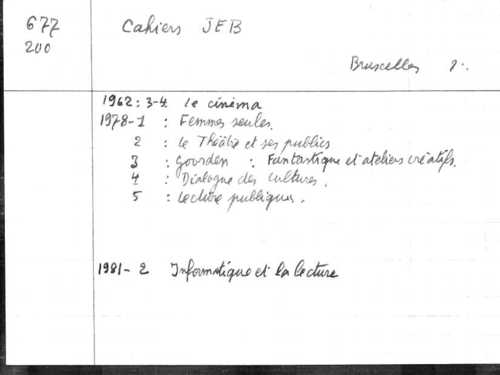 677
200
Cahiers JEB
Bruxelles
1962: 3-4 le cinéma
1978-1 : Femmes seules.
2 : Le Théâtre et ses publics
3 : Gourden : Fantastique et ateliers créatifs.
4 : Dialogue des cultures.
5 : Lecture publique.
1981-2 Informatique et la lecture